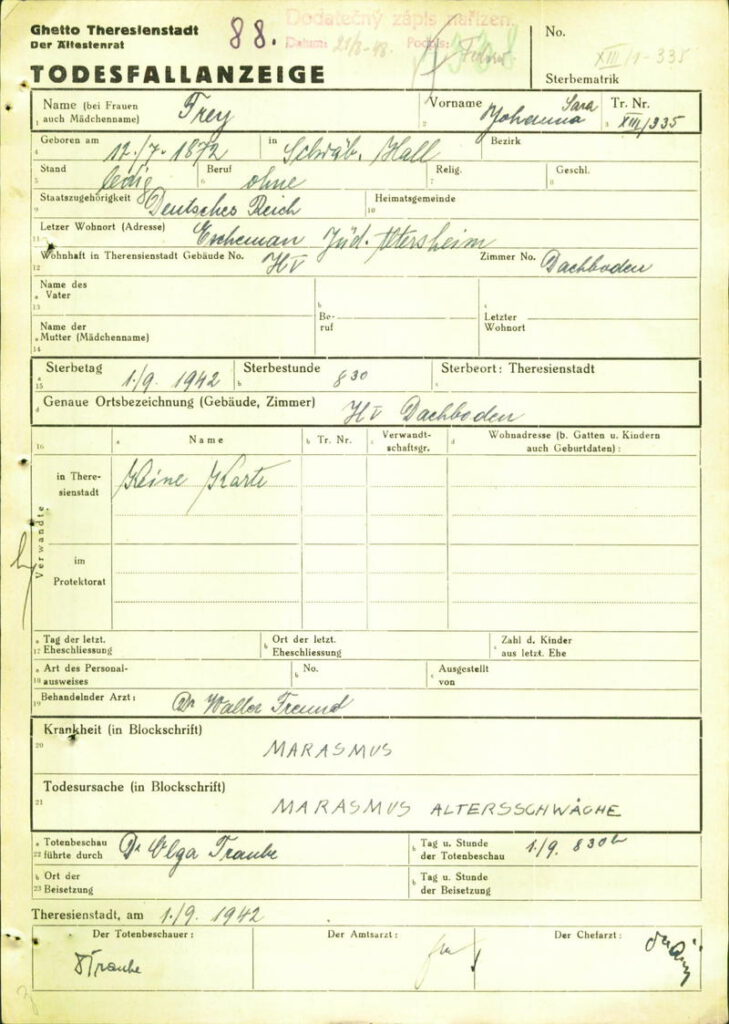 Ghetto Theresienstadt
Der Ältestenrat
88.
Dodatečný zápis nařízen.
Datum: 21/8-48. Podpis:
No.
XIII/1-335
TODESFALLANZEIGE
Sterbematrik
Name (bei Frauen auch Mädchenname) Frey
Vorname Sara Johanna
Tr. Nr. XIII/335
Geboren am 12./7. 1872 in Schwäb. Hall Bezirk
Stand ledig Beruf ohne Relig. Geschl.
Staatszugehörigkeit Deutsches Reich Heimatsgemeinde
Letzer Wohnort (Adresse) Escheman Jüd.
Wohnhaft in Theresienstadt Gebäude No. HV Zimmer No. Dachboden
Name des Vater
Beruf
Letzter Wohnort
Name der Mutter (Mädchenname)
Sterbetag 1./9. 1942 Sterbestunde 830 Sterbeort: Theresienstadt
Genaue Ortsbezeichnung (Gebäude, Zimmer) HV Dachboden
Name Tr. Nr. Verwandtschaftsgr. Wohnadresse (b. Gatten u. Kindern auch Geburtdaten):
Verwandte
in Theresienstadt Keine Karte
im Protektorat
Tag der letzt. Eheschliessung
Ort der letzt. Eheschliessung
Zahl d. Kinder aus letzt. Ehe
Art des Personalausweises
No.
Ausgestellt von
Behandelnder Arzt: Dr Walter Freund
Krankheit (in Blockschrift)
MARASMUS
Todesursache (in Blockschrift)
MARASMUS ALTERSSCHWÄCHE
Totenbeschau führte durch Dr Olga Traube
Tag u. Stunde der Totenbeschau 1./9. 830h
Ort der Beisetzung
Tag u. Stunde der Beisetzung
Theresienstadt, am 1./9. 1942
Der Totenbeschauer: Der Amtsarzt: Der Chefarzt:
Traube